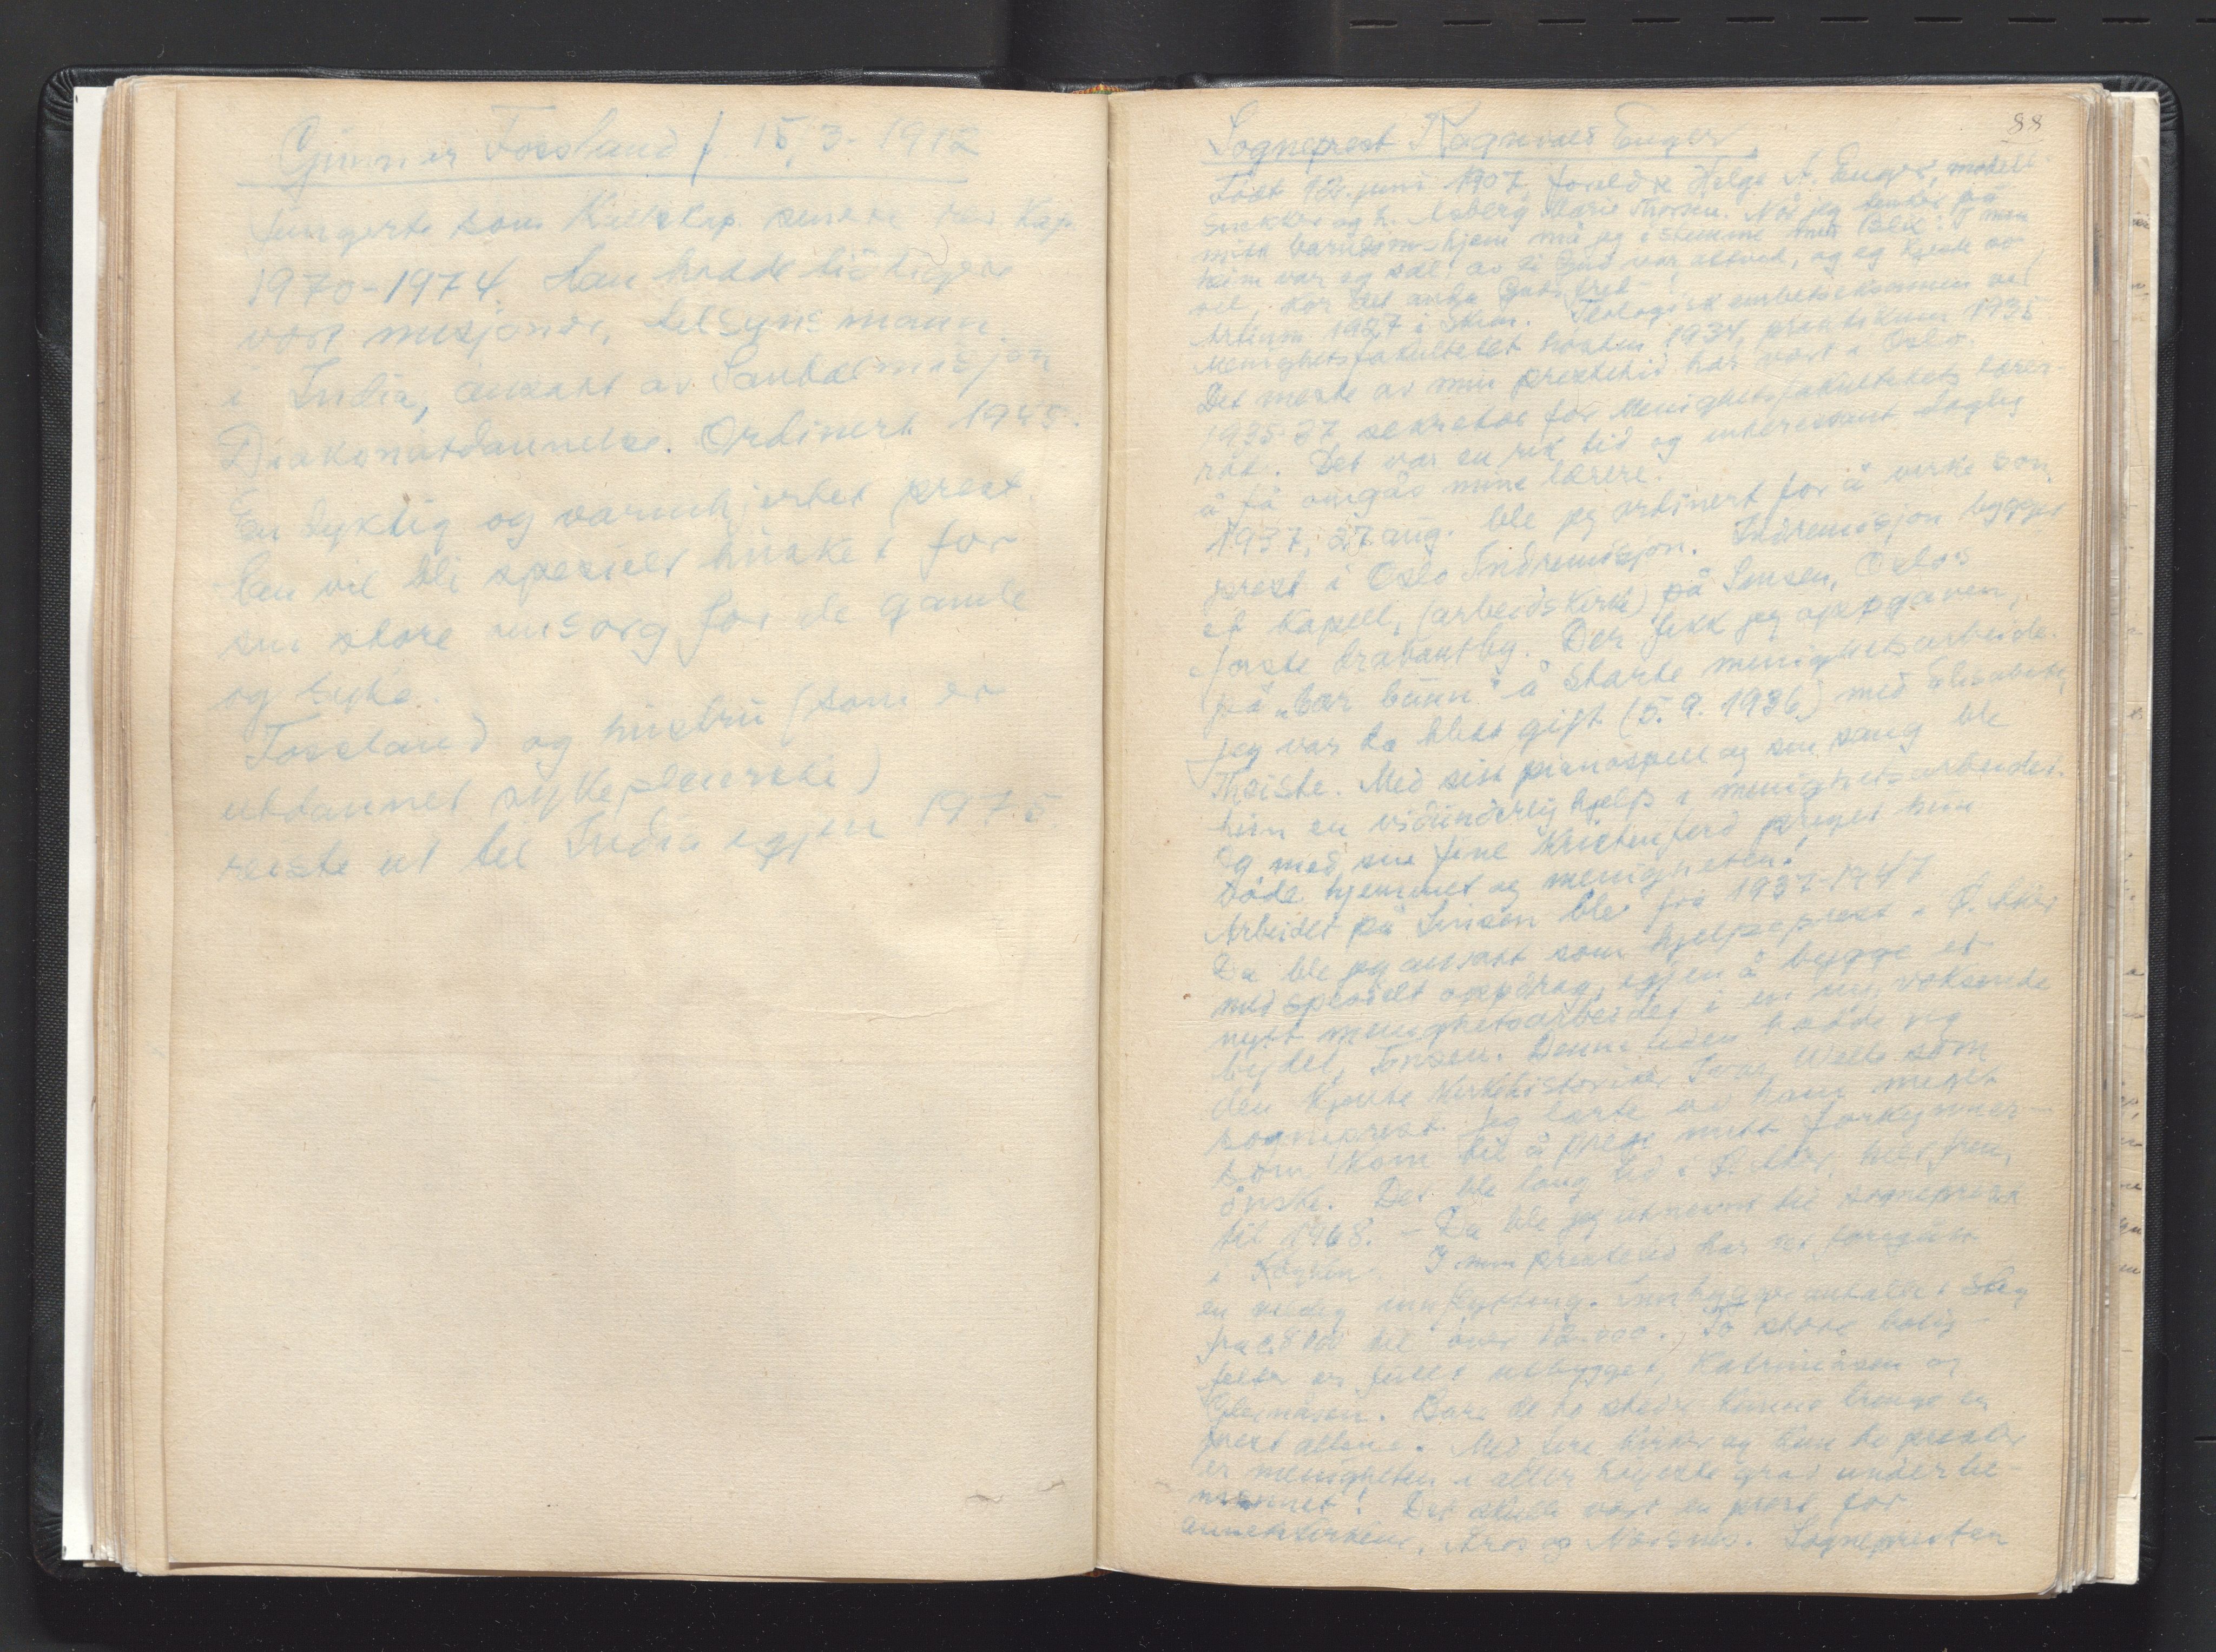 Gunnar Fossland f. 15.3-1912
fungerte som Kallskap. senere res. Kap.
1970-1974. Han hadde tidligere
vært misjonær, tilsynsmann
i India, ansatt av Santalmisjon
Diakonutdannelse. Ordinert 1945.
En dyktig og varmhjertet prest.
Han vil bli spesielt husket for
sin store omsorg for de gamle
og syke.
Fossland og hustru (som er
utdannet sykepleierske)
reiste ut til India igjen 1975.
88
Sogneprest Ragnvald Enger.
Født 12. juni 1907, foreldre Helge A. Enger, modell-
snekker og h. Aaberg Marie Thorsen. Når jeg tenker på
mitt barndomshjem må jeg istemme med Blix: I min
heim var eg sæl, av di Gud var attved, og eg kjende so
vel, kor det anda Guds fred -!
Artium 1927 i Skien. Teologisk embetseksamen ved
Menighetsfakultetet høsten 1934, praktikum 1935.
Det meste av min prestetid har vært i Oslo.
1935-37 sekretær for Menighetsfakultetets lærer-
råd. Det var en rik tid og interessant daglig
å få omgås mine lærere.
1937, 27. aug. ble jeg ordinert for å virke som
prest i Oslo Indremisjon. Indremisjon bygget
et kapell, (arbeidskirke) på Sinsen, Oslos
første drabantby. Der fikk jeg oppgaven,
på „bar bunn" å starte menighetsarbeide.
Jeg var da blitt gift (5.9.1936) med Elisabeth
Thoiste. Med sitt pianospill og sin sang ble
hun en vidunderlig hjelp i menighetsarbeidet.
Og med sin fine kristenferd preget hun
både hjemmet og menigheten.
Arbeidet på Sinsen ble fra 1937-1947
Da ble jeg ansatt som hjelpeprest i Ø. Aker
med spesielt oppdrag, igjen å bygge et
nytt menighetsarbeidet i en ny, voksende
bydel, Tonsen. Denne tiden hadde jeg
den kjente kirkehistoriker Ivar Welle som
sogneprest. Jeg lærte av ham meget
som kom til å prege mitt forkynner-
ønske. Det ble lang tid i Ø. Aker, helt frem
til 1968. - Da ble jeg utnevnt til sogneprest
i Røyken. I min prestetid har det foregått
en veldig innflytting. Innbyggerantallet steg
fra c. 8000 til over 12.000. To store bolig-
felter er fullt utbygget, Katrineåsen og
. Bare de to steder kunne trenge en
prest alene. Med fire kirker og bare to prester
er menigheten i aller høyeste grad underbe-
mannet! Det skulle vært en prest for
annekskirkene, Åros og Nærsnes. Sognepresten